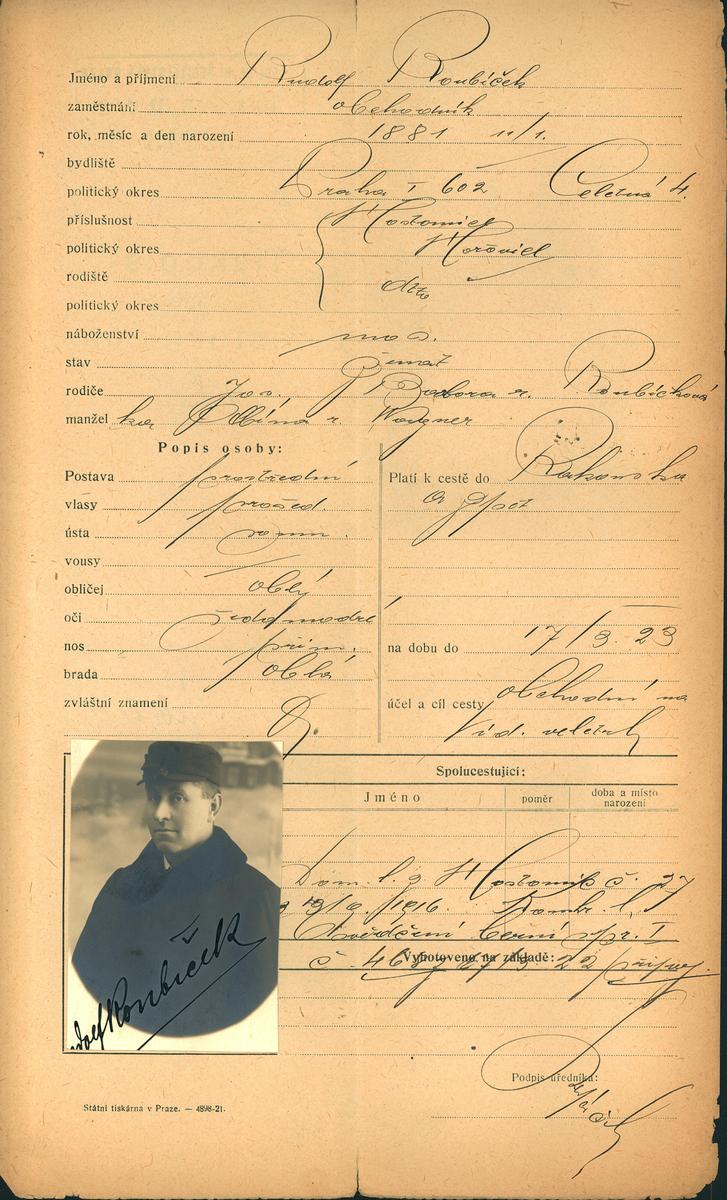 Jméno a příjmení Rudolf Roubíček
zaměstnání obchodník
rok, měsíc a den narození 1881 11/1.
bydliště
politický okres Praha I 602 Celetná 4.
příslušnost Hostomice
politický okres Hořovice
rodiště dtto
politický okres
náboženství
stav ženat
rodiče Jos. Barbora r. Roubíčková
manžel ka Albína r. Wagner
Popis osoby:
Postava prostřední
vlasy prošed.
ústa
vousy
obličej oblý
oči šedomodré
nos přim.
brada oblá
zvláštní znamení
Platí k cestě do Rakouska
a zpět
na dobu do 17/3 23
účel a cíl cesty obchodní na
Víd. veletrh
Spolucestující:
Jméno poměr doba a místo narození
Dom. l. z Hostomic č. 27
1916.
Osvědčení berní spr. I
Vyhotoveno na základě:
č. 22
Rudolf Roubíček
Podpis úředníka:
Státní tiskárna v Praze. — 4898-21.